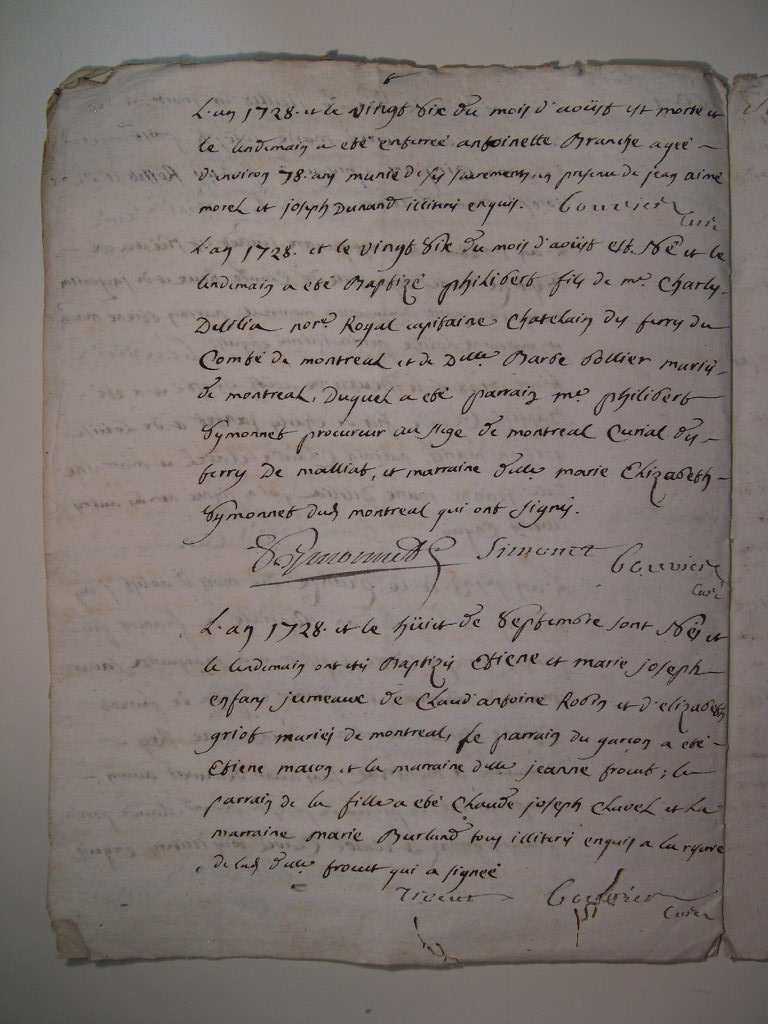 L'an 1728. et le vingt six du mois d'aoüst est morte et
le lendemain a eté enterrée antoinette Branche agéé
d'environ 78. ans munie de ses sacrements en presence de jean aimé
morel et joseph Dunand illiterés enquis. Bouvier
Curé
L'an 1728. et le vingt six du mois d'aoüst est Né et le
lendemain a eté Baptizé philibert fils de mr. Charles
Delilia nore. Royal capitaine Chatelain des terres du
Comté de montreal et de Dlle. Barbe sollier mariés
de montreal, Duquel a eté parrain me. philibert
Symonnet procureur au siege de montreal Curial des
terres De malliat, et marraine dlle. marie Elizabeth
Symonnet dud. montreal qui ont signés.
Symonnet Simonet Bouvier
Curé
L'an 1728. et le hüict de Septembre sont Nés et
le lendemain ont etés Baptizés Etiene et marie joseph
enfans jumeaux de Claud'antoine Robin et d'elizabeth
griot mariés de montreal, Le parrain du garçon a eté
Etiene macon et la marraine dlle. jeanne frouet; le
parrain de la fille a eté Claude joseph Clavel et La
marraine marie Burland tous illiterés enquis a la reserve
de lad. dlle. frouet qui a signéé
Bouvier
Curé